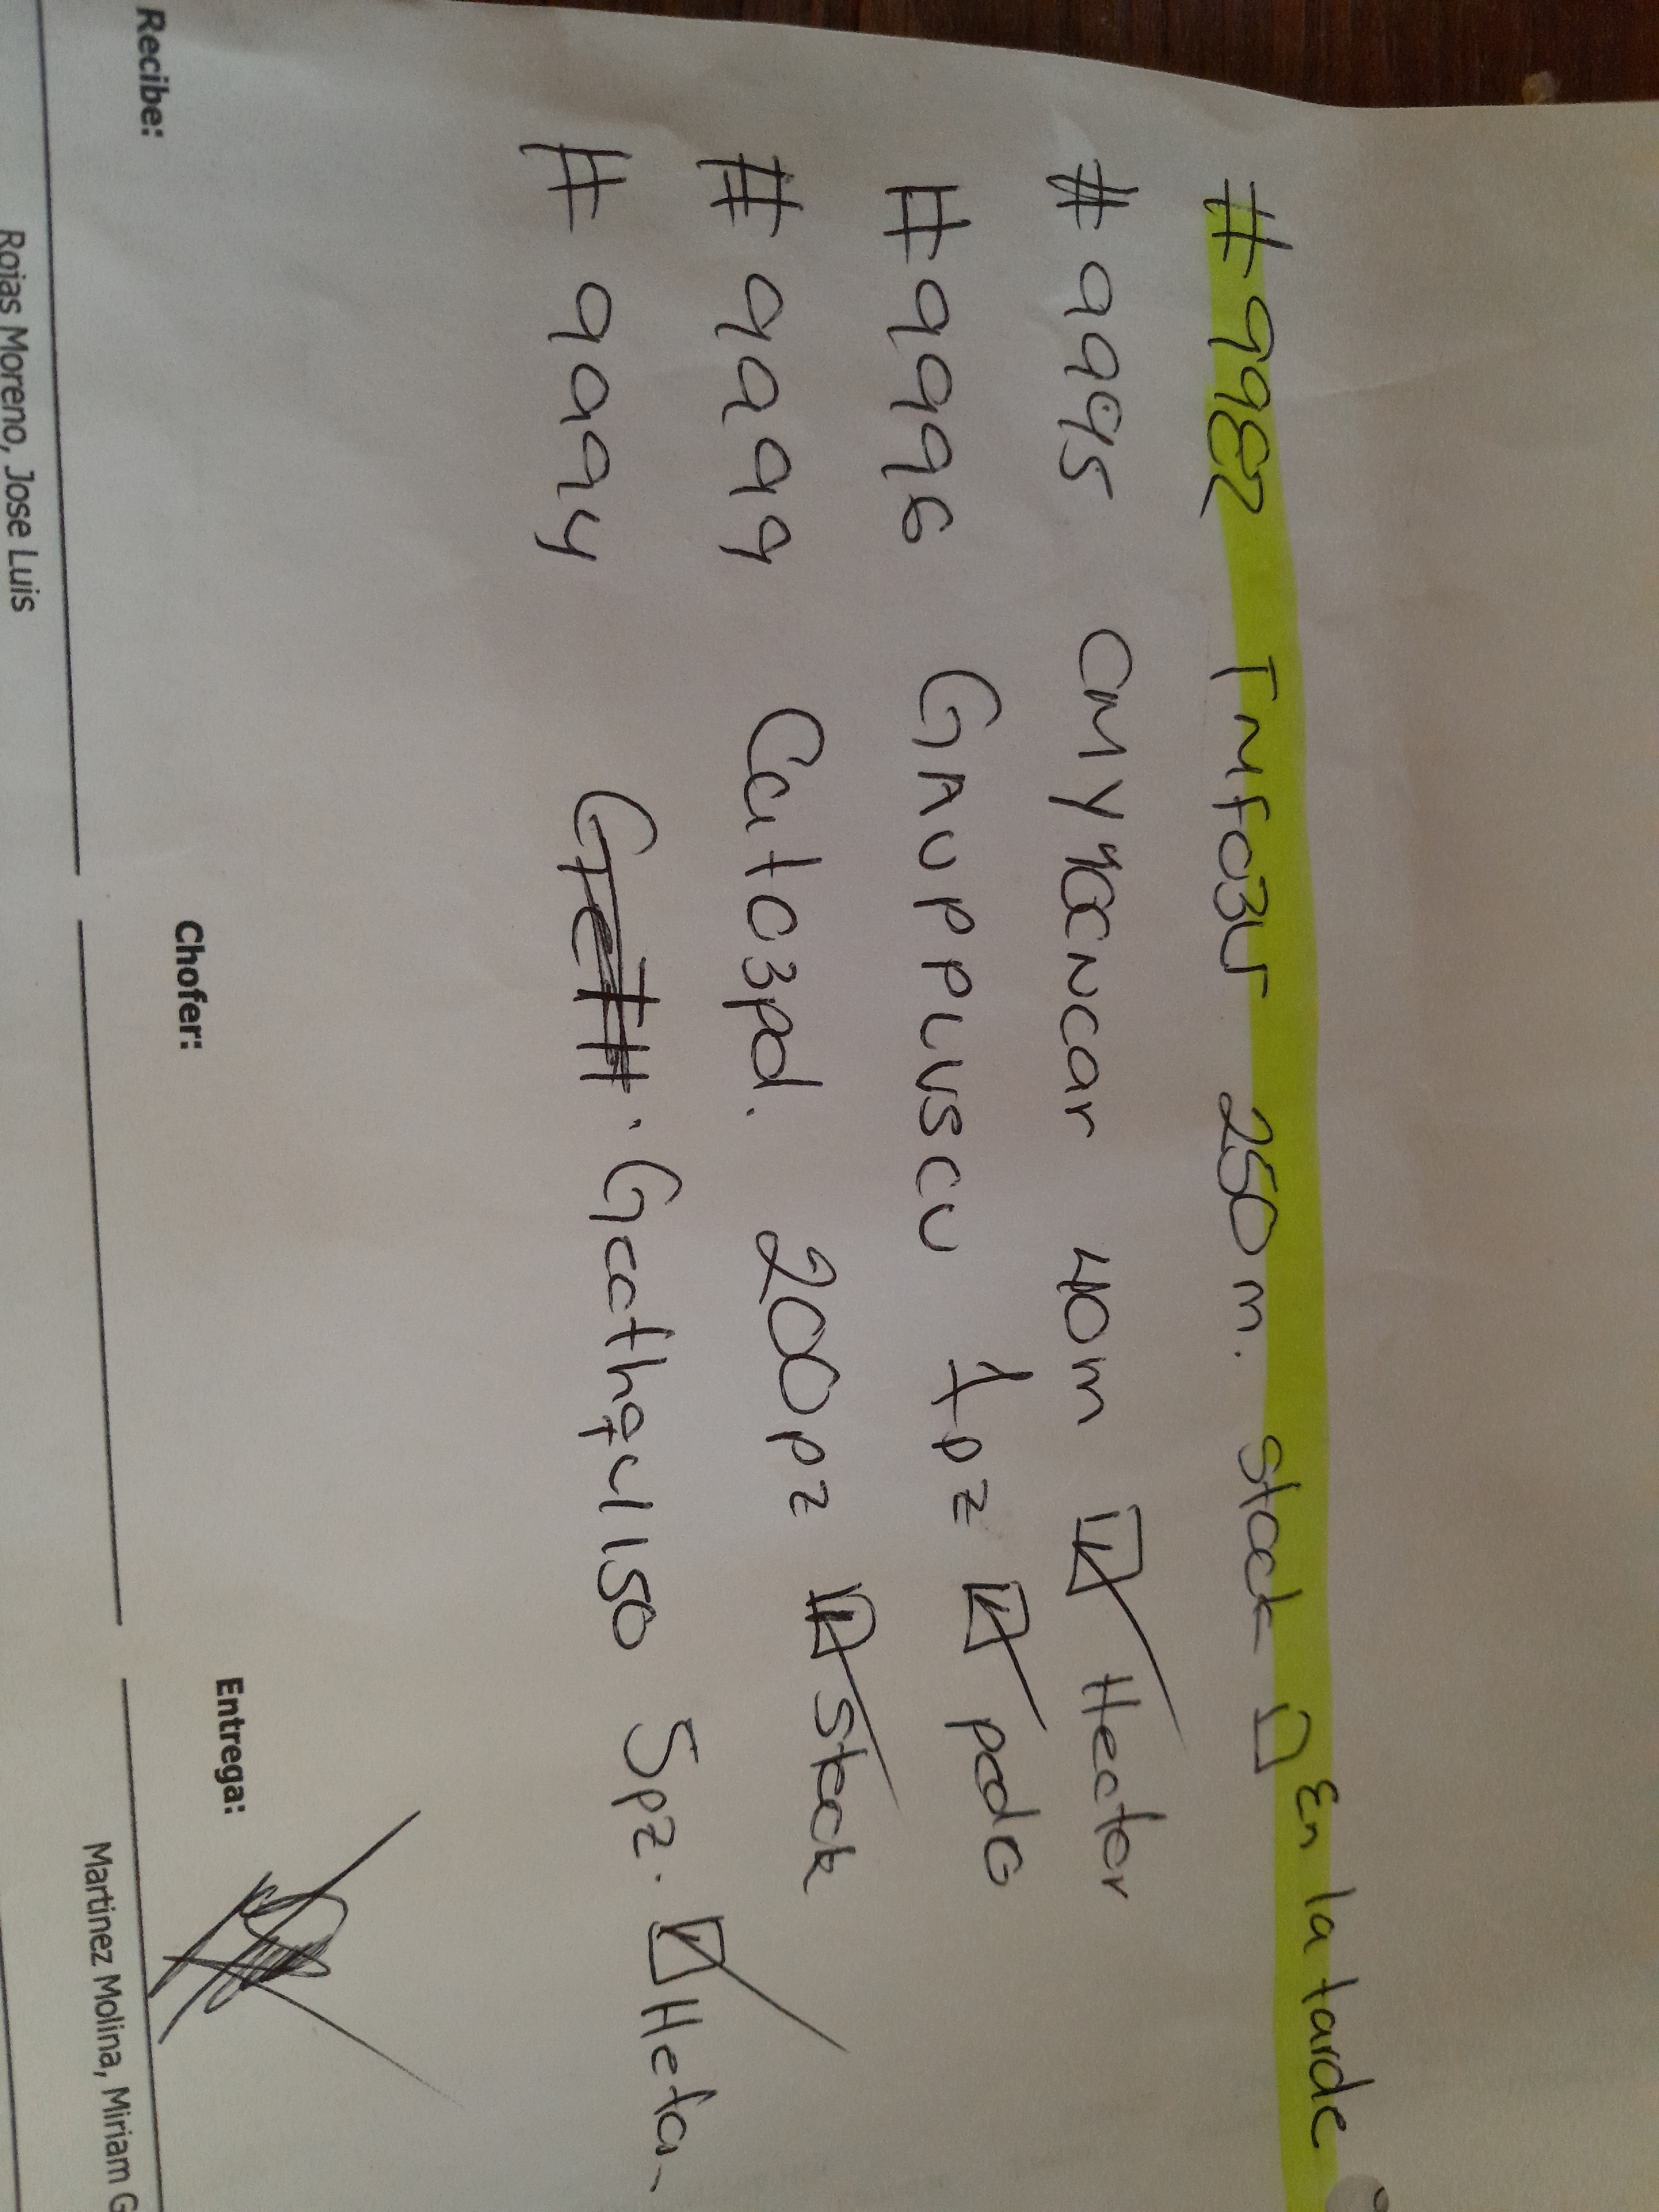 #9982 Tmfo3ur 250m. stock ☐ En la tarde
#9995 CMY40CNCar 40m ☑ Hector
#9996 GAUPPLUSCU 1pz ☑ pedo
#9999 Cat03pd. 200pz ☑ stock
#9994 5pz. ☑
Recibe: Chofer: Entrega:
Rojas Moreno, Jose Luis Martinez Molina, Miriam G